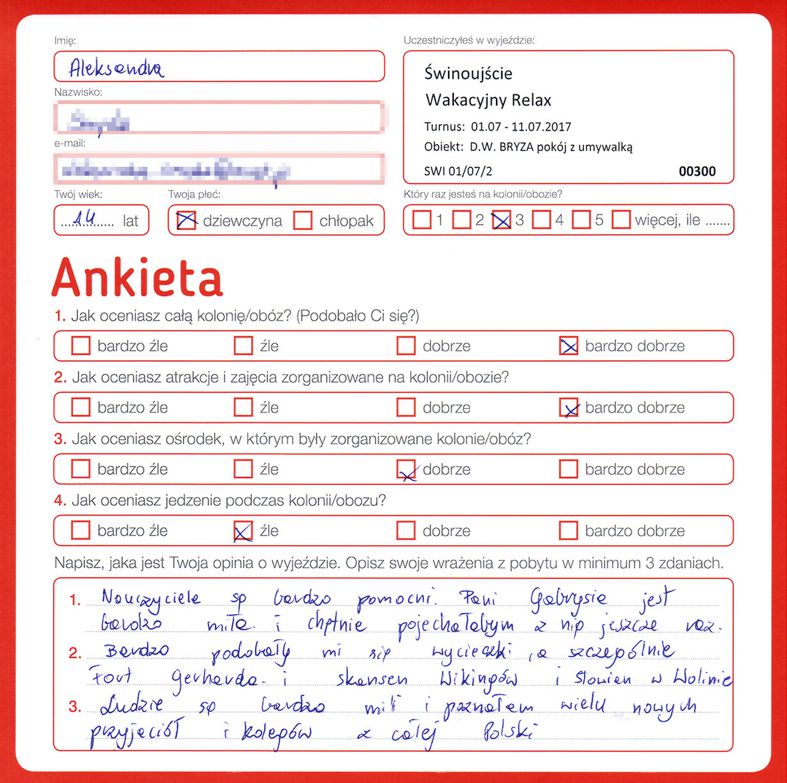 Imię:
Aleksandra
Uczestniczyłeś w wyjeździe:
Świnoujście
Wakacyjny Relax
Turnus: 01.07 - 11.07.2017
Obiekt: D.W. BRYZA pokój z umywalką
SWI 01/07/2 00300
Nazwisko:
e-mail:
Twój wiek:
14 lat
Twoja płeć:
dziewczyna chłopak
Który raz jesteś na kolonii/obozie?
1 2 3 4 5 więcej, ile .......
Ankieta
1. Jak oceniasz całą kolonię/obóz? (Podobało Ci się?)
bardzo źle źle dobrze bardzo dobrze
2. Jak oceniasz atrakcje i zajęcia zorganizowane na kolonii/obozie?
bardzo źle źle dobrze bardzo dobrze
3. Jak oceniasz ośrodek, w którym były zorganizowane kolonie/obóz?
bardzo źle źle dobrze bardzo dobrze
4. Jak oceniasz jedzenie podczas kolonii/obozu?
bardzo źle źle dobrze bardzo dobrze
Napisz, jaka jest Twoja opinia o wyjeździe. Opisz swoje wrażenia z pobytu w minimum 3 zdaniach.
1. Nauczyciele są bardzo pomocni. Pani Gabrysia jest
bardzo miła i chętnie pojechałabym z nią jeszcze raz.
2. Bardzo podobały mi się wycieczki, a szczególnie
Fort Gerharda i skansen Wikingów i Słowian w Wolinie
3. Ludzie są bardzo mili i poznałam wielu nowych
przyjaciół i kolegów z całej Polski